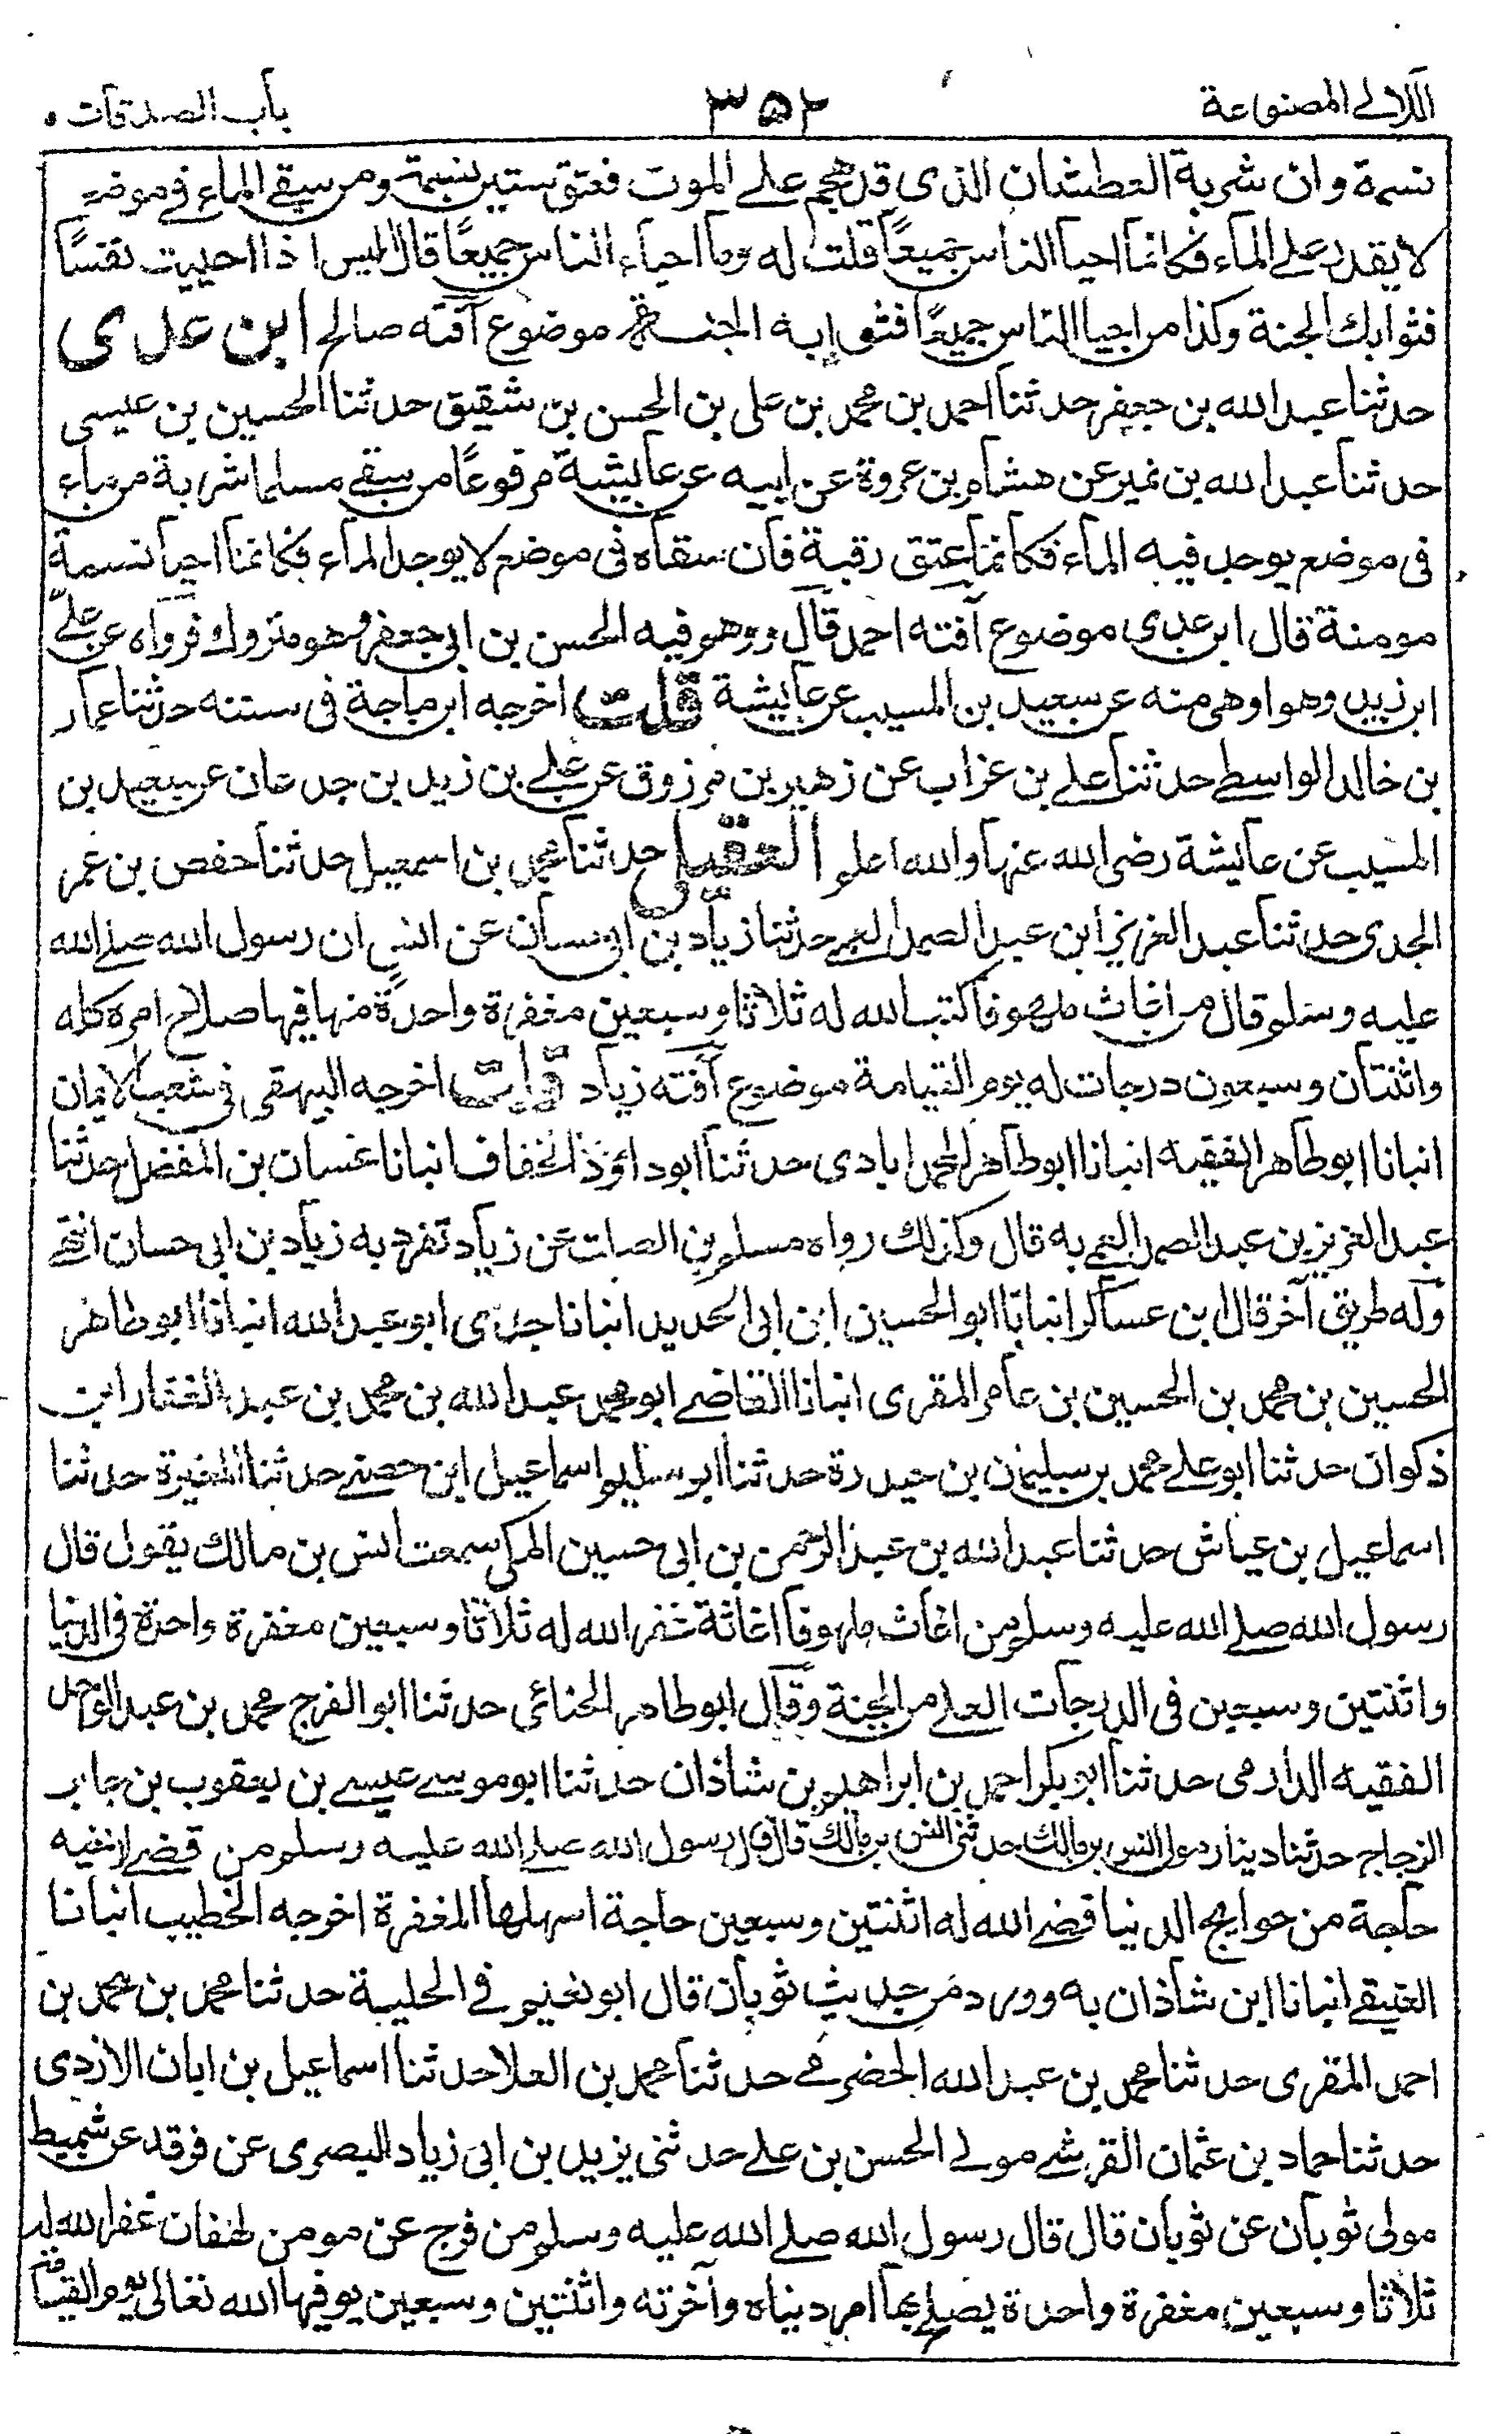 اللآلى المصنوعة
٣٥٢
باب الصدقات
نسمة وان شربة العطشان الذى قد هجم على الموت فعتق ستين نسمة ومن سقى الماء فى موضع
لا يقدر على الماء فكانما احيا الناس جميعًا قلت له وما احياء الناس جميعًا قال اليس اذا احييت نفسًا
فثوابك الجنة وكذا من احيا الناس جميعًا فثوابه الجنة موضوع آفته صالح ابن عدى
حدثنا عبد الله بن جعفر حدثنا احمد بن محمد بن على بن الحسن بن شقيق حدثنا الحسين بن عيسى
حدثنا عبد الله بن نمير عن هشام بن عروة عن ابيه عن عايشة مرفوعًا من سقى مسلما شربة من ماء
فى موضع يوجد فيه الماء فكانما عتق رقبة فان سقاه فى موضع لا يوجد الماء فكانما احيا نسمة
مومنة قال ابن عدى موضوع آفته احمد قال وروهو فيه الحسن بن ابى جعفر وهو متروك فرواه عن على
ابن زيد وهو اوهى منه عن سعيد بن المسيب عن عايشة قلت اخرجه ابن ماجة فى سننه حدثنا عمار
بن خالد الواسطى حدثنا على بن غراب عن زهير بن مرزوق عن على بن زيد بن جدعان عن سعيد بن
المسيب عن عايشة رضى الله عنها والله اعلم العقيلى حدثنا محمد بن اسمعيل حدثنا حفص بن عمر
الجدى حدثنا عبد العزيز ابن عبد الصمد العمى حدثنا زياد بن ابى حسان عن انس ان رسول الله صلى الله
عليه وسلم قال من اغاث ملهوفا كتب الله له ثلاثا وسبعين مغفرة واحدة منها فيها صلاح امره كله
واثنتان وسبعون درجات له يوم القيامة موضوع آفته زياد قلت اخرجه البيهقى فى شعب الايمان
انبانا ابو طاهر الفقيه انبانا ابو طاهر المحمدابادى حدثنا ابو داؤد الخفاف انبانا غسان بن المفضل حدثنا
عبد العزيز بن عبد الصمد العمى به قال وكذلك رواه مسلم بن الصلت عن زياد تفرد به زياد بن ابى حسان انتهى
وله طريق آخر قال ابن عساكر انبانا ابو الحسين ابن ابى الحديد انبانا جدى ابو عبد الله انبانا ابو طاهر
الحسين بن محمد بن الحسين بن عامر المقرى انبانا القاضى ابو محمد عبد الله بن محمد بن عبد الغفار ابن
ذكوان حدثنا ابو على محمد بن سليمن بن حيدرة حدثنا ابو سليم اسماعيل ابن حصن حدثنا المغيرة حدثنا
اسماعيل بن عياش حدثنا عبد الله بن عبد الرحمن بن ابى حسين المكى سمعت انس بن مالك يقول قال
رسول الله صلى الله عليه وسلم من اغاث ملهوفا اغاثة غفر الله له ثلاثا وسبعين مغفرة واحدة فى الدنيا
واثنتين وسبعين فى الدرجات العلى من الجنة وقال ابو طاهر الحنائى حدثنا ابو الفرج محمد بن عبد الواحد
الفقيه الدارمى حدثنا ابو بكر احمد بن ابراهيم بن شاذان حدثنا ابو موسى عيسى بن يعقوب بن جابر
الزجاج حدثنا دينار مولى انس بن مالك حدثنى انس بن مالك قال قال رسول الله صلى الله عليه وسلم من قضى لاخيه
حاجة من حوايج الدنيا قضى الله له اثنتين وسبعين حاجة اسهلها المغفرة اخرجه الخطيب انبانا
العتيقى انبانا ابن شاذان به وورد من حديث ثوبان قال ابو نعيم فى الحلية حدثنا محمد بن محمد بن
احمد المقرى حدثنا محمد بن عبد الله الحضرمى حدثنا محمد بن العلا حدثنا اسماعيل بن ابان الازدى
حدثنا حماد بن عثمان القرشى مولى الحسن بن على حدثنى يزيد بن ابى زياد البصرى عن فرقد عن شميط
مولى ثوبان عن ثوبان قال قال رسول الله صلى الله عليه وسلم من فرج عن مومن لهفان غفر الله له
ثلاثا وسبعين مغفرة واحدة يصلح بها امر دنياه وآخرته واثنتين وسبعين يوفيها الله تعالى يوم القيامة